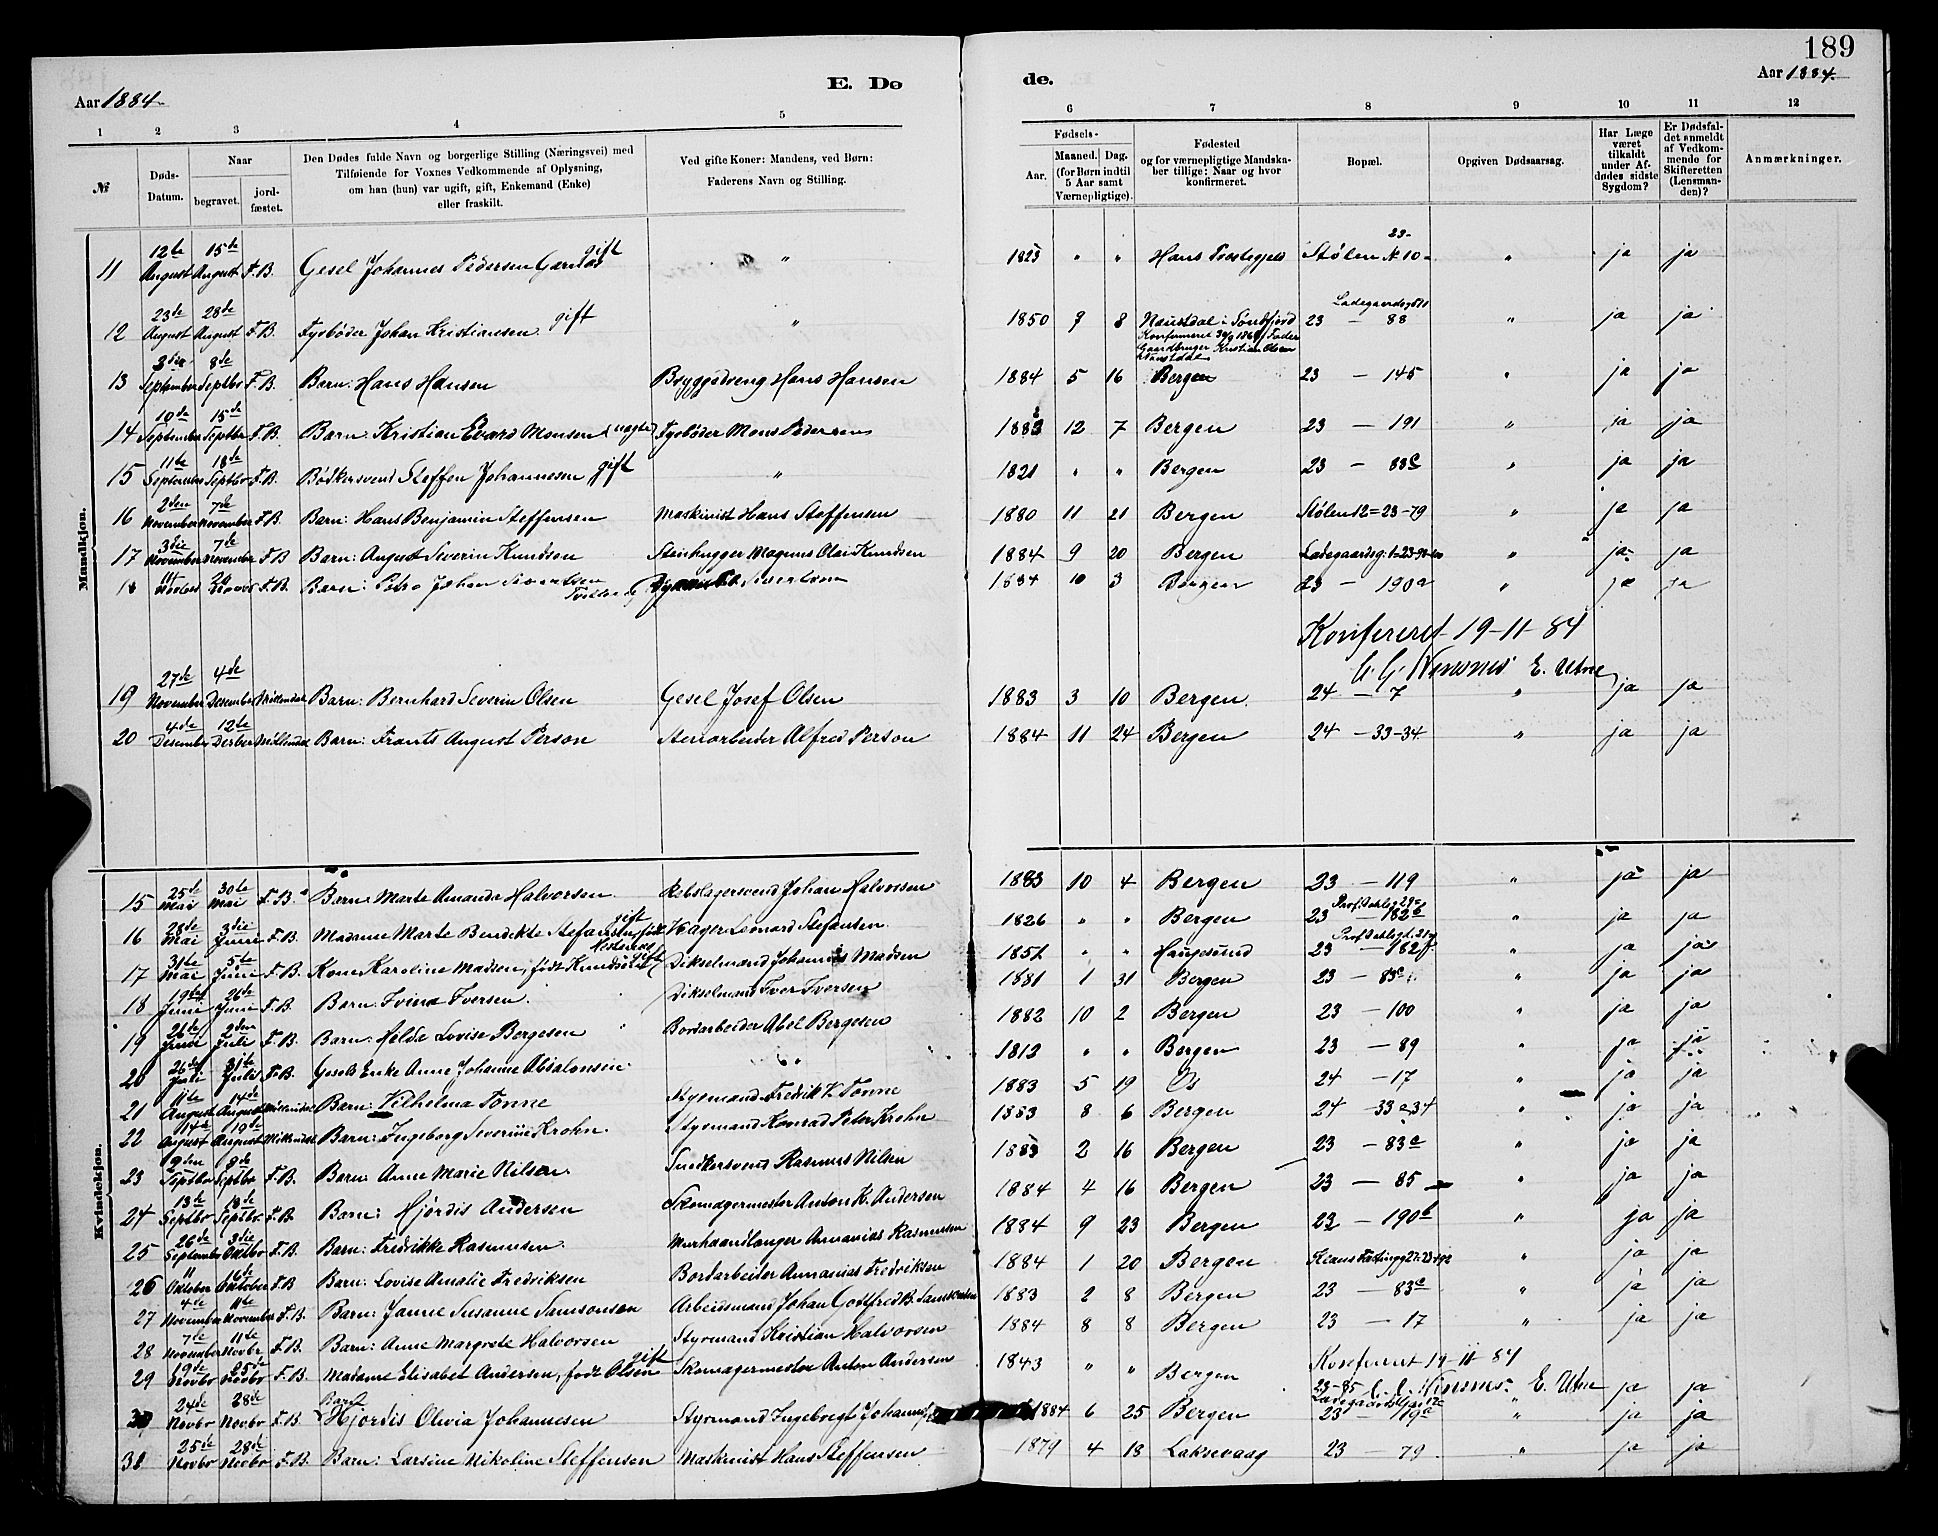 189
Aar 1884.
E. Dø
de.
Aar 1884.
1 2 3 4 5 6 7 8 9 10 11 12
№
Døds-Datum.
Naar
begravet.
jord-fæstet.
Den Dødes fulde Navn og borgerlige Stilling (Næringsvei) med
Tilføiende for Voxnes Vedkommende af Oplysning,
om han (hun) var ugift, gift, Enkemand (Enke)
eller fraskilt.
Ved gifte Koner: Mandens, ved Børn:
Faderens Navn og Stilling.
Fødsels-
Aar.
Maaned. Dag.
(for Børn indtil
5 Aar samt
Værnepligtige).
Fødested
og for værnepligtige Mandska-
ber tillige: Naar og hvor
konfirmeret.
Bopæl.
Opgiven Dødsaarsag.
Har Læge
været
tilkaldt
under Af-
dødes sidste
Sygdom?
Er Dødsfal-
det anmeldt
af Vedkom-
mende for
Skifteretten
(Lensman-
den)?
Anmærkninger.
Mandkjøn.
11 12te August 15de August F.B. Gesel Johannes Pedersen gift " 1823 " " Stølen N 10 23- " ja ja
12 23de August 28de August F.B. Fyrbøder Johan Kristiansen gift " 1850 9 8 Naustdal i Søndfjord Ladegaardsg 23 — 88 " ja ja
13 3die September 8de Septbr F.B. Barn: Hans Hansen Bryggedreng Hans Hansen 1884 5 16 Bergen 23 — 145 " ja ja
14 10de September 15de Septbr F.B. Barn: Kristian Evard Monsen Fyrbøder Mons Pedersen 1883 12 7 Bergen 23 — 191 " ja ja
15 11te September 18de Septbr F.B. Bødkersvend Steffen Johannesen gift " 1821 " " Bergen 23 — 83c " ja ja
16 2den November 7de November F.B. Barn: Hans Benjamin Steffensen Maskinist Hans Steffensen 1880 11 21 Bergen Stølen 12 = 23-79 " ja ja
17 3die November 7de November F.B. Barn: August Severin Knudsen Stenhugger Magnus Olai Knudsen 1884 9 20 Bergen " ja ja
18 11 Novbr F.B. Barn: Johan Sivertsen Sivertsen 1884 10 3 Bergen 23 — 190a " ja ja
Konfereret 19-11-84
E. Utne
19 27de November 4de Desember Barn: Bernhard Severin Olsen Gesel Josef Olsen 1883 3 10 Bergen. 24 — 7 " ja ja
20 4de Desember 12te Decber Barn: Frants August Person Stenarbeider Alfred Person 1884 11 24 Bergen 24 — 33-34 " ja ja
Kvindekjøn.
15 25de Mai 30te Mai F.B. Barn: Marte Amanda Halvorsen Rebslagersvend Johan Halvorsen 1883 10 4 Bergen 23 — 119 " ja ja
16 28de Mai 3die Juni F.B. Madame Marte Bendikte Stefansen gift Leonard Stefansen 1826 " " Bergen 23 — 182b " ja ja
17 31te Mai 5te Juni F.B. Kone Karoline Madsen, født Knudsen gift Dikselmand Johannes Madsen 1852 " " Haugesund 23 — 182f. " ja ja
18 19de Juni 26de Juni F.B. Barn: Ivina Iversen. Dikselmand Iver Iversen 1881 1 31 Bergen 23 — 83c " ja ja
19 26de Juni 2den Juli F.B. Barn: Hilda Lovise Bergesen Bordarbeider Abel Bergesen 1882 10 2 Bergen 23 — 100 " ja ja
20 26de Juli 31te Juli F.B. Gesels Enke Anne Johanne Absalonsen " 1812 " " Bergen 23 — 89 " ja ja
21 11te August 14de August Barn: Vilhelma Tonne Styrmand Fredrik V. Tonne 1883 5 19 Os 24 — 17 " ja ja
22 14de August 19de August Barn: Ingeborg Severine Krohn. Styrmand Konrad Peter Krohn 1883 8 6 Bergen 24 — 33 a 34 " ja ja
23 2den Septbr 8de Septbr F.B. Barn: Anne Marie Nilsen. Rasmus Nilsen 1883 2 16 Bergen 23 — 83c " ja ja
24 13de Septbr 18de Septbr F.B. Barn: Hjørdis Andersen Skomagermester Anton K. Andersen 1884 4 16 Bergen 23 — 85 " ja ja
25 26de September 3die Oktbr F.B. Barn: Fredrikke Rasmusen. Murhaandlanger Annanias Rasmusen 1884 9 23 Bergen 23 — 190b " ja ja
26 11 Oktober 16de Oktober F.B Barn: Lovise Amalie Fredriksen Bordarbeider Annanias Fredriksen 1884 1 20 Bergen " ja ja
27 4de November 11te November F.B. Barn: Janne Susanne Samsonsen Arbeidsmand Johan Gottfred B. Samsonsen 1883 2 8 Bergen 23 — 83c " ja ja
28 7de November 11te Novbr F.B. Barn: Anne Margrete Halvorsen Styrmand Kristian Halvorsen 1884 8 8 Bergen 23 — 17 " ja ja
29 19de Novbr 25de Novbr F.B. Madame Elisabet Andersen, født Olsen gift Skomagermester Anton Andersen 1843 " " Bergen 23-85 ja ja
Konfereret 19-11-84
E. Utne
30 24de Novbr 28de Novbr F.B. Barn Hjørdis Olivia Johannesen Styrmand Ingebregt 1884 6 25 Bergen 23 — 19a " ja ja
31 25de Novbr 28de Novbr F.B. Barn: Larsine Nikoline Steffensen Maskinist Hans Steffensen 1879 4 18 Laksevaag 23 — 79 " ja ja